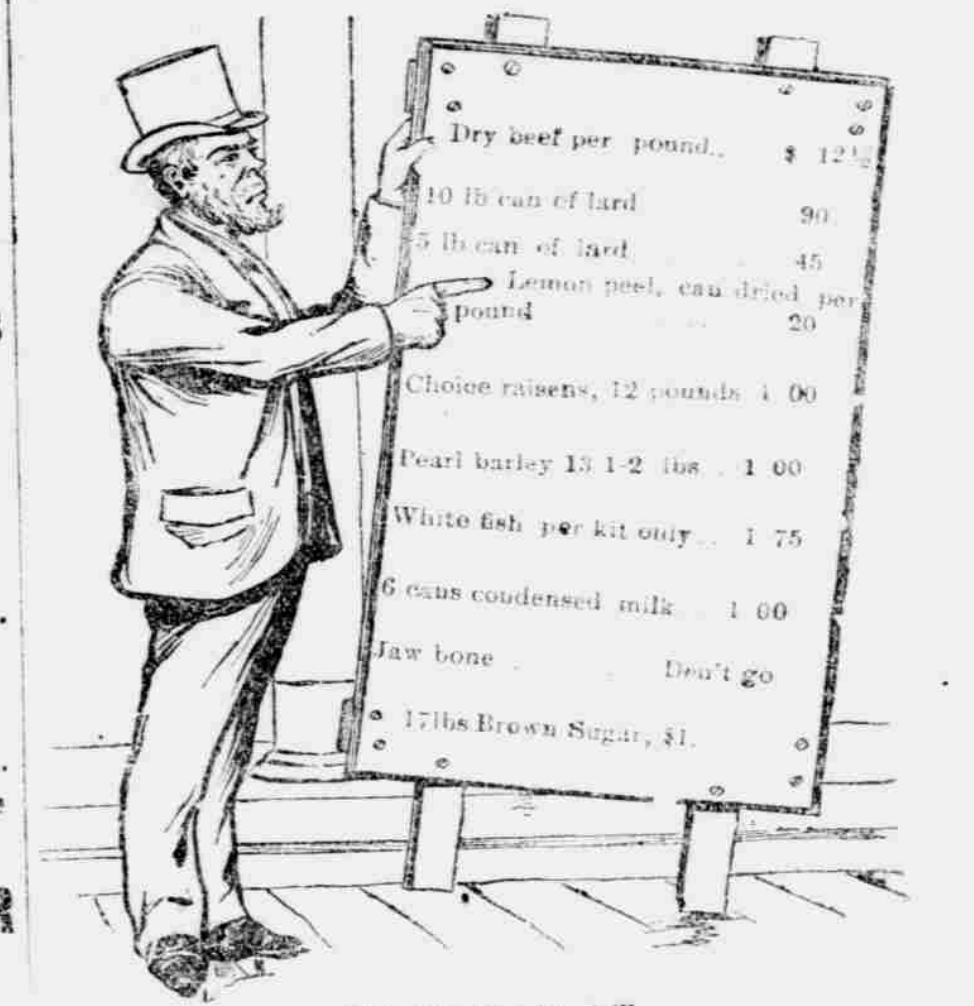 Dry beef per pound.. $ 12½
10 lb can of lard 90
5 lb can of lard 45
Lemon peel, can dried per
pound 20
Choice raisens, 12 pounds 1 00
Pearl barley 13 1-2 lbs . 1 00
White fish per kit only .. 1 75
6 cans condensed milk . . 1 00
Jaw bone . . Don't go
17lbs Brown Sugar, $1.